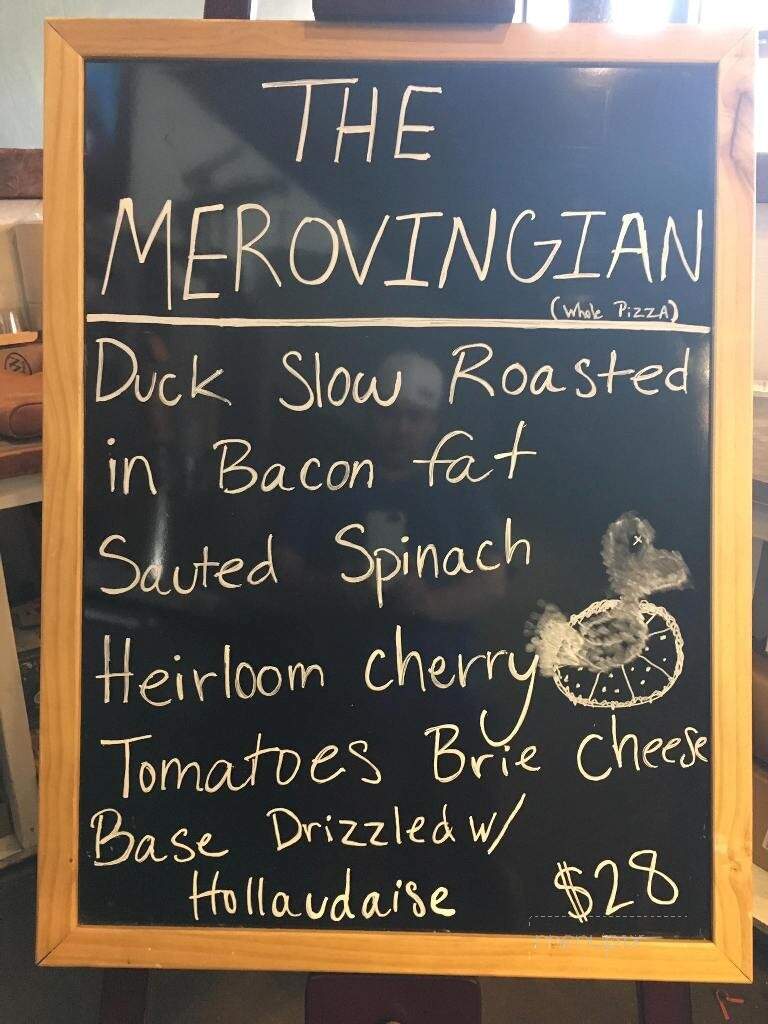 THE
MEROVINGIAN
(Whole PIZZA)
Duck Slow Roasted
in Bacon fat
Sauted Spinach
Heirloom cherry
Tomatoes Brie cheese
Base Drizzled w/
Hollaudaise $28